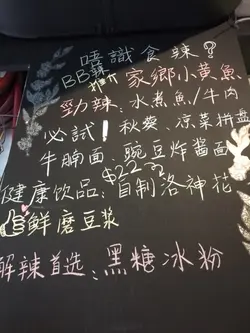 唔識食辣?
BB辣 推介 家鄉小黄魚
勁辣:水煮魚/牛肉
必試!秋葵、凉菜拼盘
牛腩面、豌豆炸酱面
$22
健康饮品:自制洛神花
鲜磨豆浆
解辣首选:黑糖冰粉